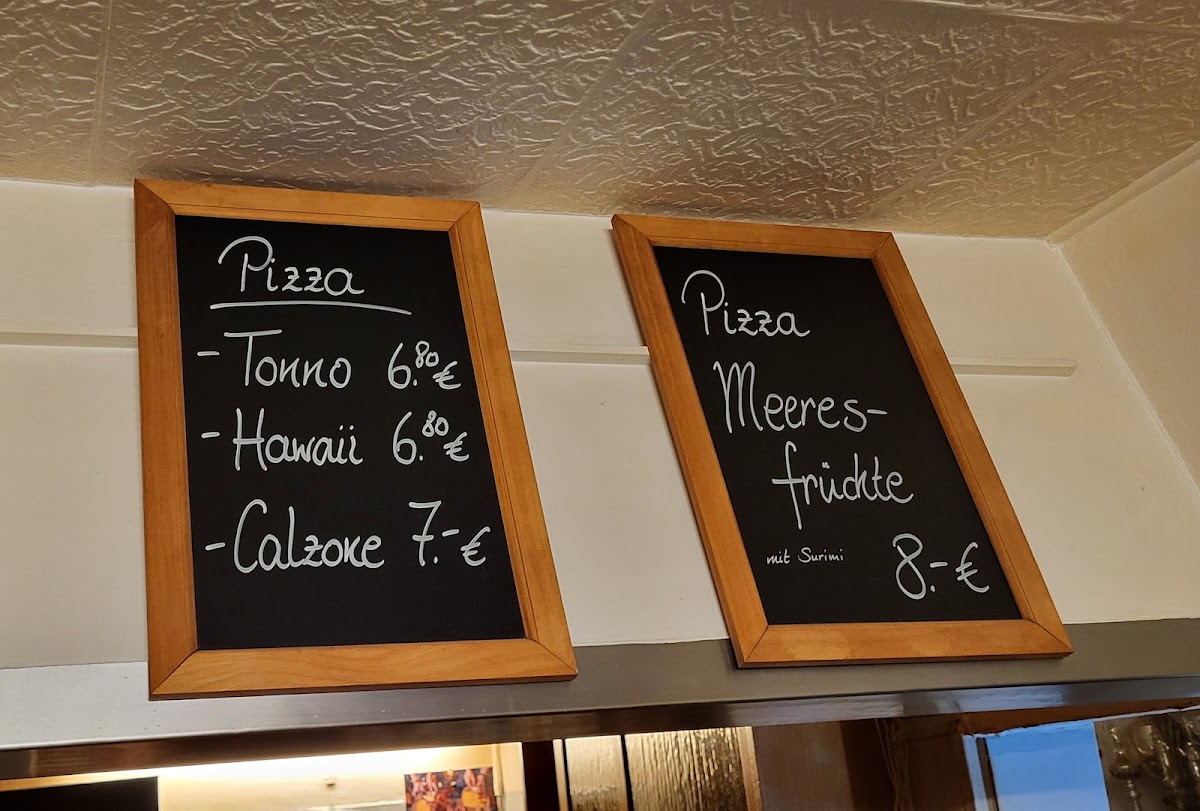 Pizza
- Tonno 6.80€
- Hawaii 6.80€
- Calzone 7.-€
Pizza
Meeres-
früchte
mit Surimi 8.-€